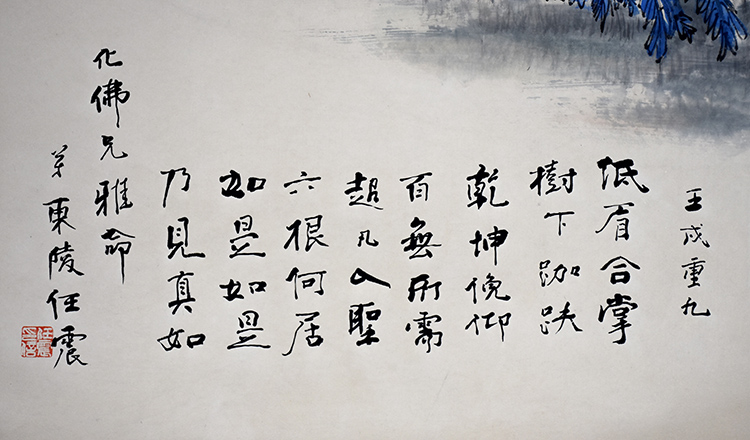 壬戌重九
低眉合掌
樹下跏趺
乾坤俛仰
百無所需
超凡入聖
六根何居
如是如是
乃見真如
化佛兄雅命
弟東陵任震